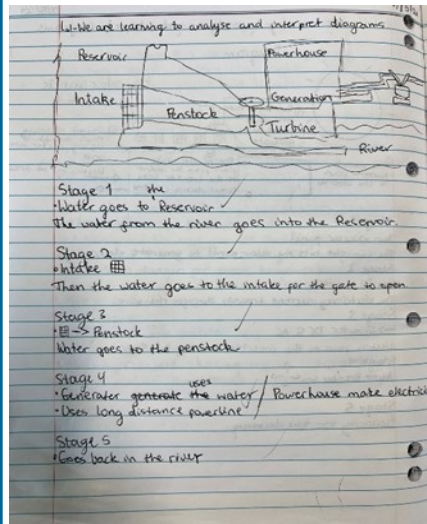 LI-We are learning to analyse and interpret diagrams
Reservoir
Powerhouse
Intake
Generation
Penstock
Turbine
River
Stage 1
•Water goes to the Reservoir
The water from the river goes into the Reservoir.
Stage 2
•Intake
Then the water goes to the intake for the gate to open
Stage 3
•-> Penstock
Water goes to the penstock
Stage 4
•Generater generate the uses water / Powerhouse make electrici
•Uses long distance powerline
Stage 5
•Goes back in the river